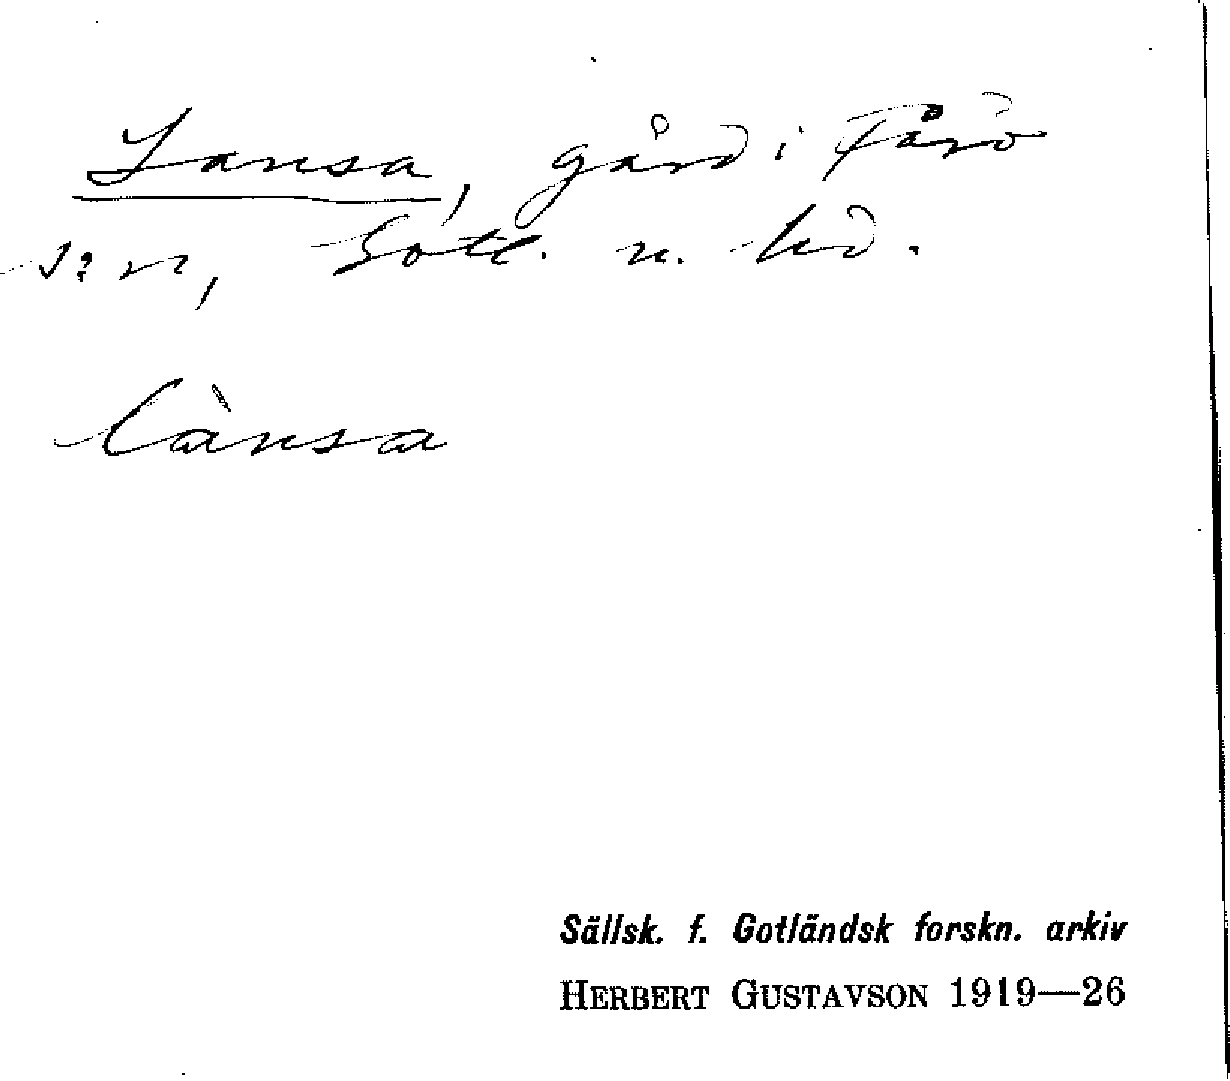 Lansa, gård i Fårö
s:n, Gotl. n. hd.
lànsa
Sällsk. f. Gotländsk forskn. arkiv
HERBERT GUSTAVSON 1919—26